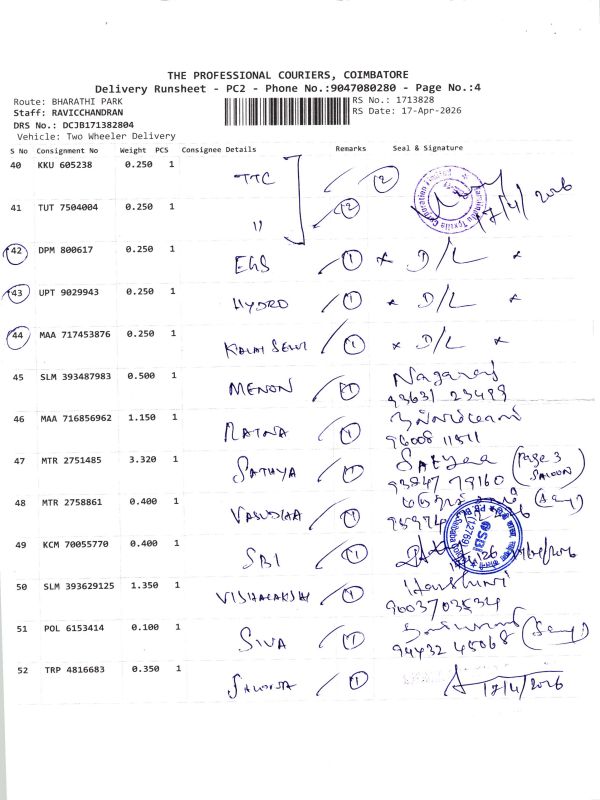 THE PROFESSIONAL COURIERS, COIMBATORE
Delivery Runsheet - PC2 - Phone No.:9047080280 - Page No.:4
Route: BHARATHI PARK RS No.: 1713828
Staff: RAVICCHANDRAN RS Date: 17-Apr-2026
DRS No.: DCJB171382804
Vehicle: Two Wheeler Delivery
S No Consignment No Weight PCS Consignee Details Remarks Seal & Signature
40 KKU 605238 0.250 1 TTC 2
17/4/2026
41 TUT 7504004 0.250 1 " 2
42 DPM 800617 0.250 1 EGS 1 × D/L ×
43 UPT 9029943 0.250 1 HYDRO 1 × D/L ×
44 MAA 717453876 0.250 1 KALAI SELVI 1 × D/L ×
45 SLM 393487983 0.500 1 MENON 1 Nagaraj
93631 23499
46 MAA 716856962 1.150 1 RATNA 1
96008 11811
47 MTR 2751485 3.320 1 SATHYA 1 Sathya (Page 3
93847 79160 SALOON)
48 MTR 2758861 0.400 1 VASUDHA 1
49 KCM 70055770 0.400 1 SBI 1
SBI
50 SLM 393629125 1.350 1 VISHALAKSHI 1 Harshini
9003703534
51 POL 6153414 0.100 1 SIVA 1
94432 45068
52 TRP 4816683 0.350 1 1 17/4/2026